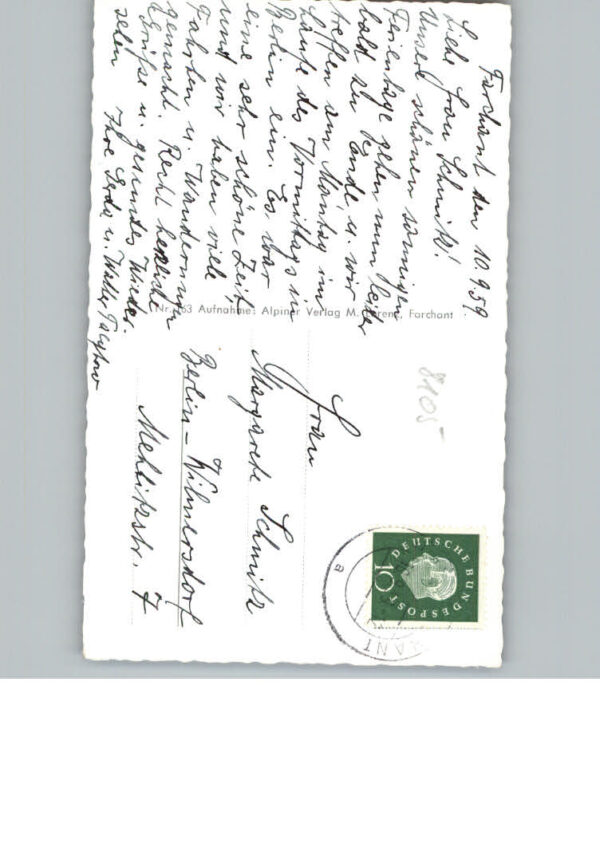 Farchant den 10.9.59
Liebe Frau Schmitz!
Unsere schönen sonnigen
Ferientage gehen nun leider
bald zu Ende u. wir
treffen am Montag im
Laufe des Vormittags in
Berlin ein. Es war
eine sehr schöne Zeit
und wir haben viele
Fahrten u. Wanderungen
gemacht. Recht herzliche
Grüße u. gesundes Wieder-
sehen
Ihre Gerda u. Walter
Nr. 63 Aufnahme: Alpiner Verlag M. Lorenz, Farchant
8105
Frau
Margarete Schmitz
Berlin-Wilmersdorf
Mehlitzstr. 7
DEUTSCHE BUNDESPOST
10
a